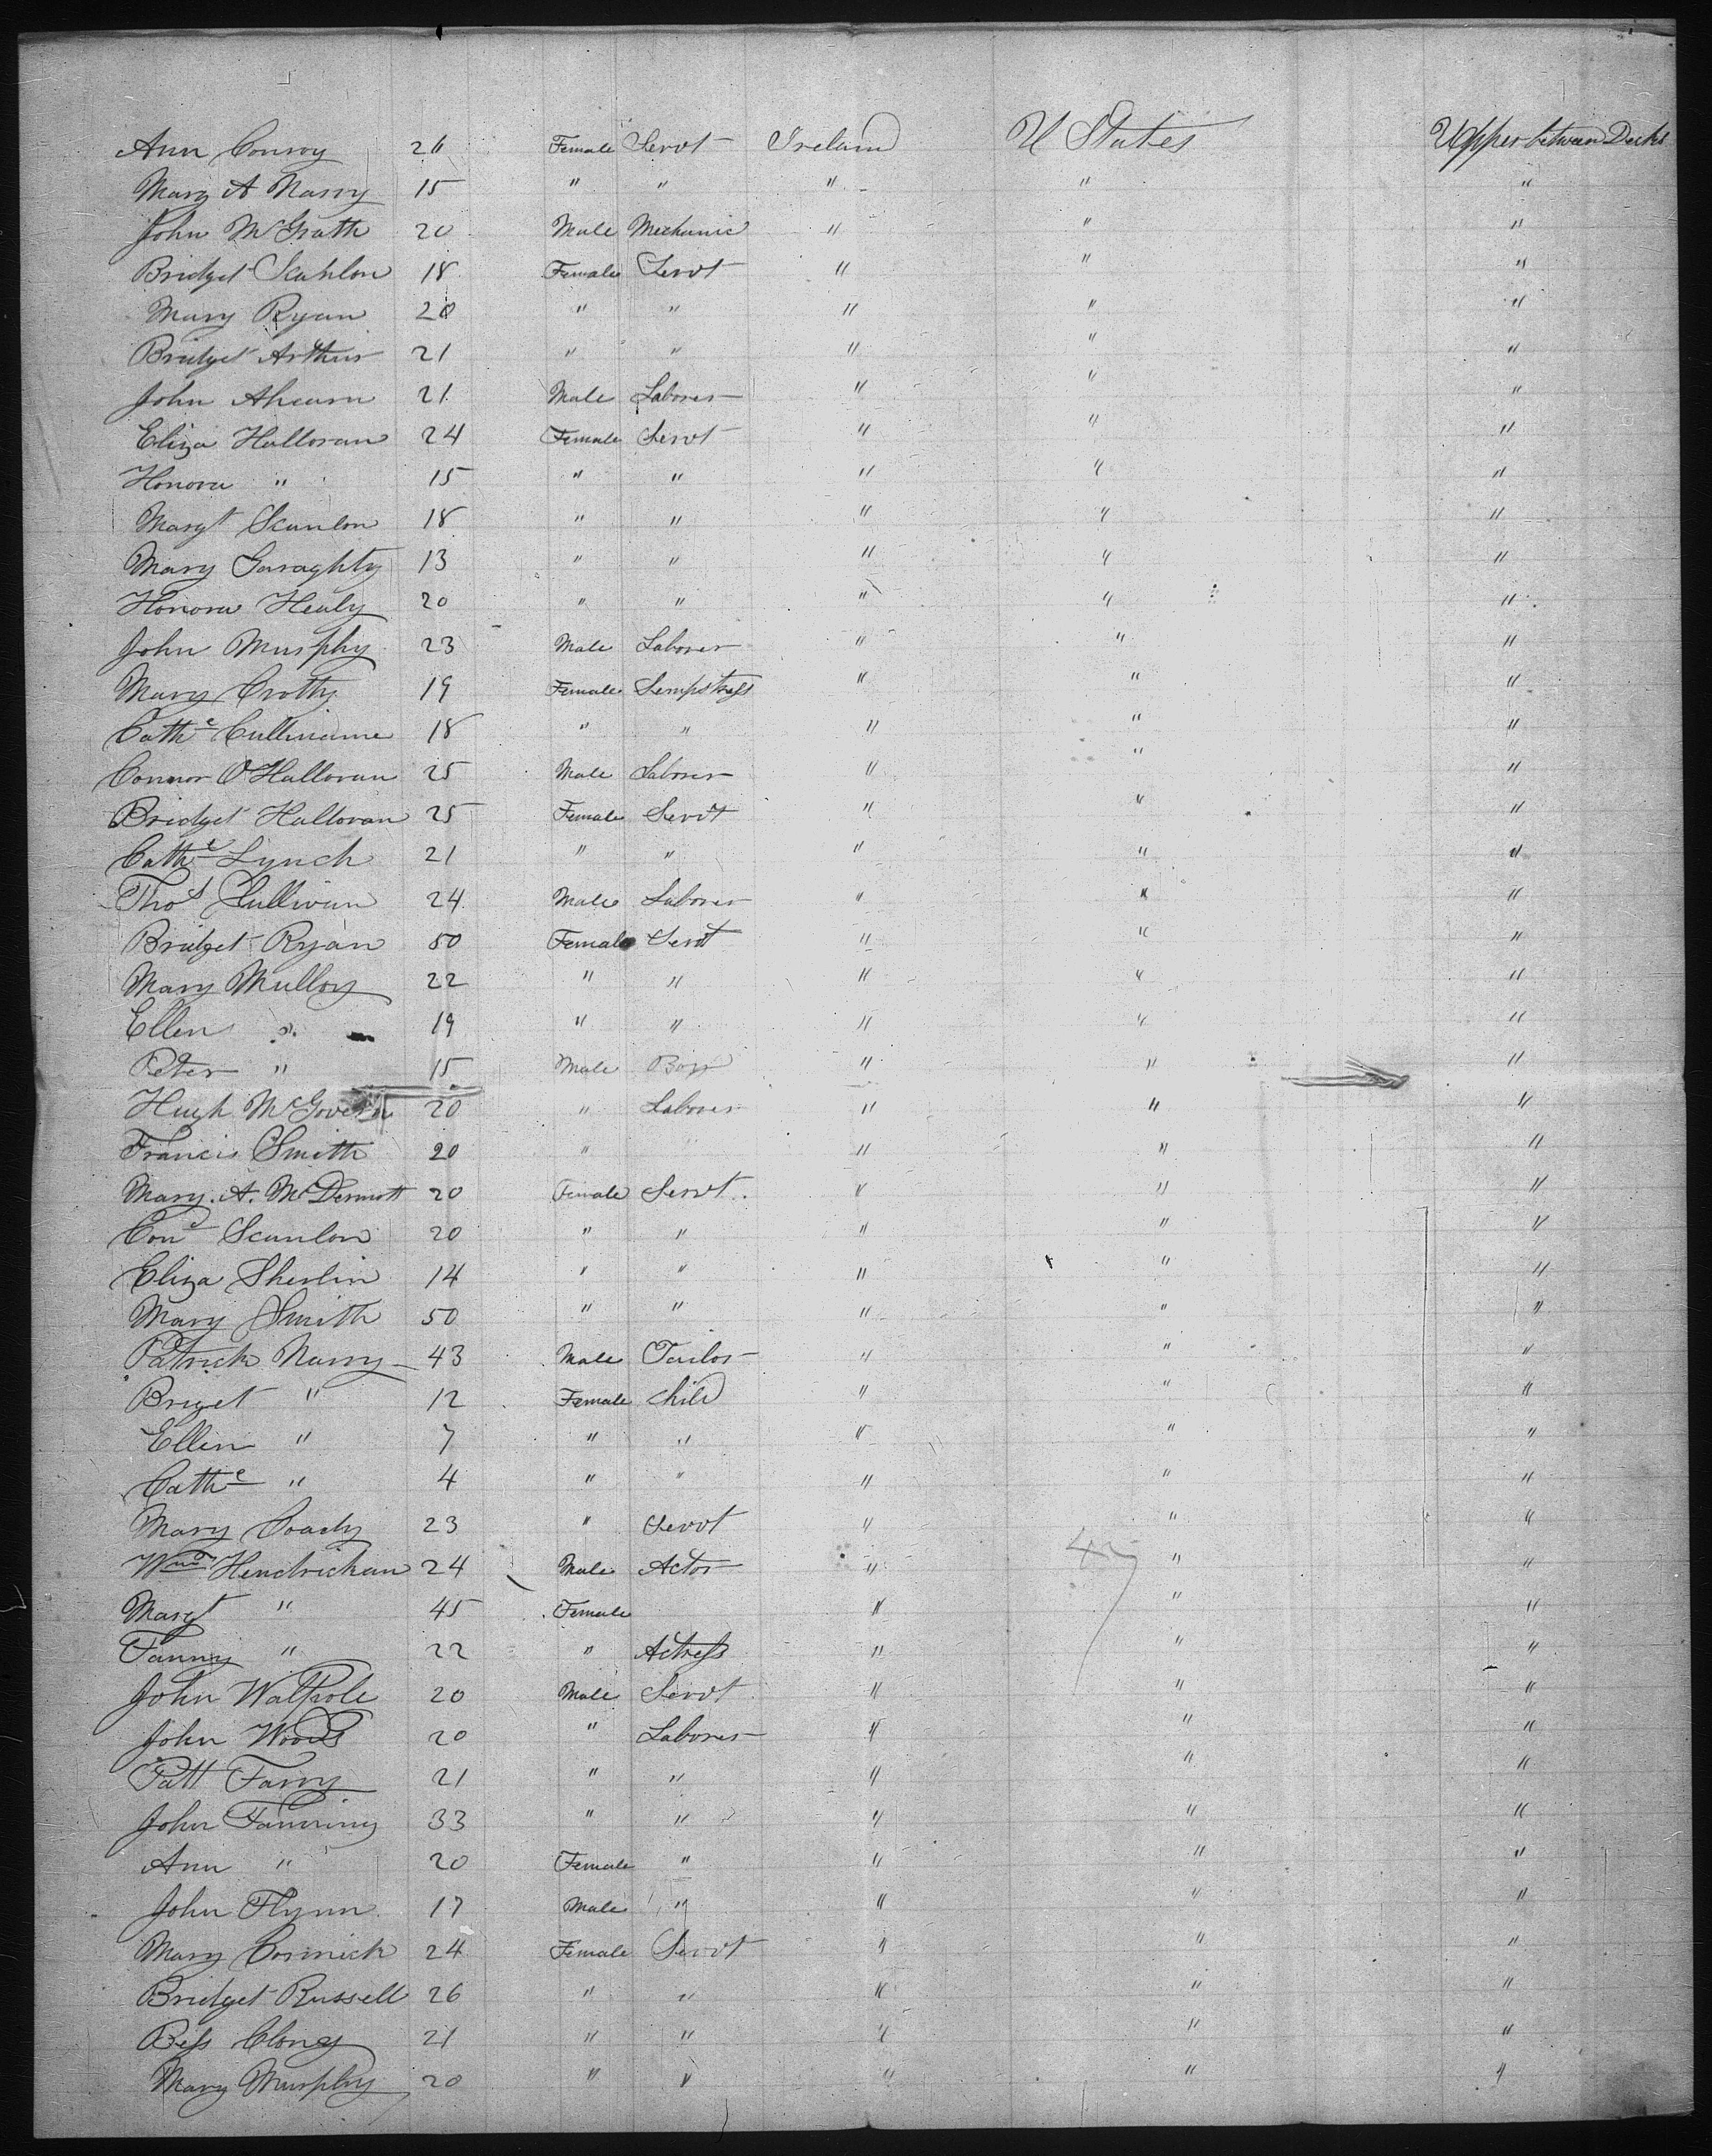 Ann Conroy 26 Female Servt Ireland U States Upper between Decks
Mary A Narry 15 " " " " "
John McGrath 20 Male Mechanic " " "
Bridget Scanlon 18 Female Servt " " "
Mary Ryan 20 " " " " "
Bridget Arthur 21 " " " " "
John Ahearn 21 Male Laborer " " "
Eliza Halloran 24 Female Servt " " "
Honora " 15 " " " " "
Margt Scanlon 18 " " " " "
Mary Garaghty 13 " " " " "
Honora Healy 20 " " " " "
John Murphy 23 Male Laborer " " "
Mary Crotty 19 Female Sempstress " " "
Cathe Cullinane 18 " " " " "
Connor O'Halloran 25 Male Laborer " " "
Bridget Halloran 25 Female Servt " " "
Cathe Lynch 21 " " " " "
Thos Sullivan 24 Male Laborer " " "
Bridget Ryan 50 Female Servt " " "
Mary Mulloy 22 " " " " "
Ellen " 19 " " " " "
Peter " 15 Male Boy " " "
Hugh McGovern 20 " Laborer " " "
Francis Smith 20 " " " " "
Mary. A. McDermott 20 Female Servt. " " "
Scanlon 20 " " " " "
Eliza Sherlin 14 " " " " "
Mary Smith 50 " " " " "
Patrick Narry 43 Male Tailor " " "
Briget " 12 Female Child " " "
Ellen " 7 " " " " "
Cathe " 4 " " " " "
Mary Coady 23 " Servt " " "
Wm Hendrickan 24 Male Actor " " "
Margt " 45 Female " " "
Fanny " 22 " Actress " " "
John Walpole 20 Male Servt " " "
John Woods 20 " Laborer " " "
Patt Farry 21 " " " " "
John Fanning 33 " " " " "
Ann " 20 Female " " " "
John Flynn 17 Male " " " "
Mary Cormick 24 Female Servt " " "
Bridget Russell 26 " " " " "
Bess Cloney 21 " " " " "
Mary Murphy 20 " " " " "